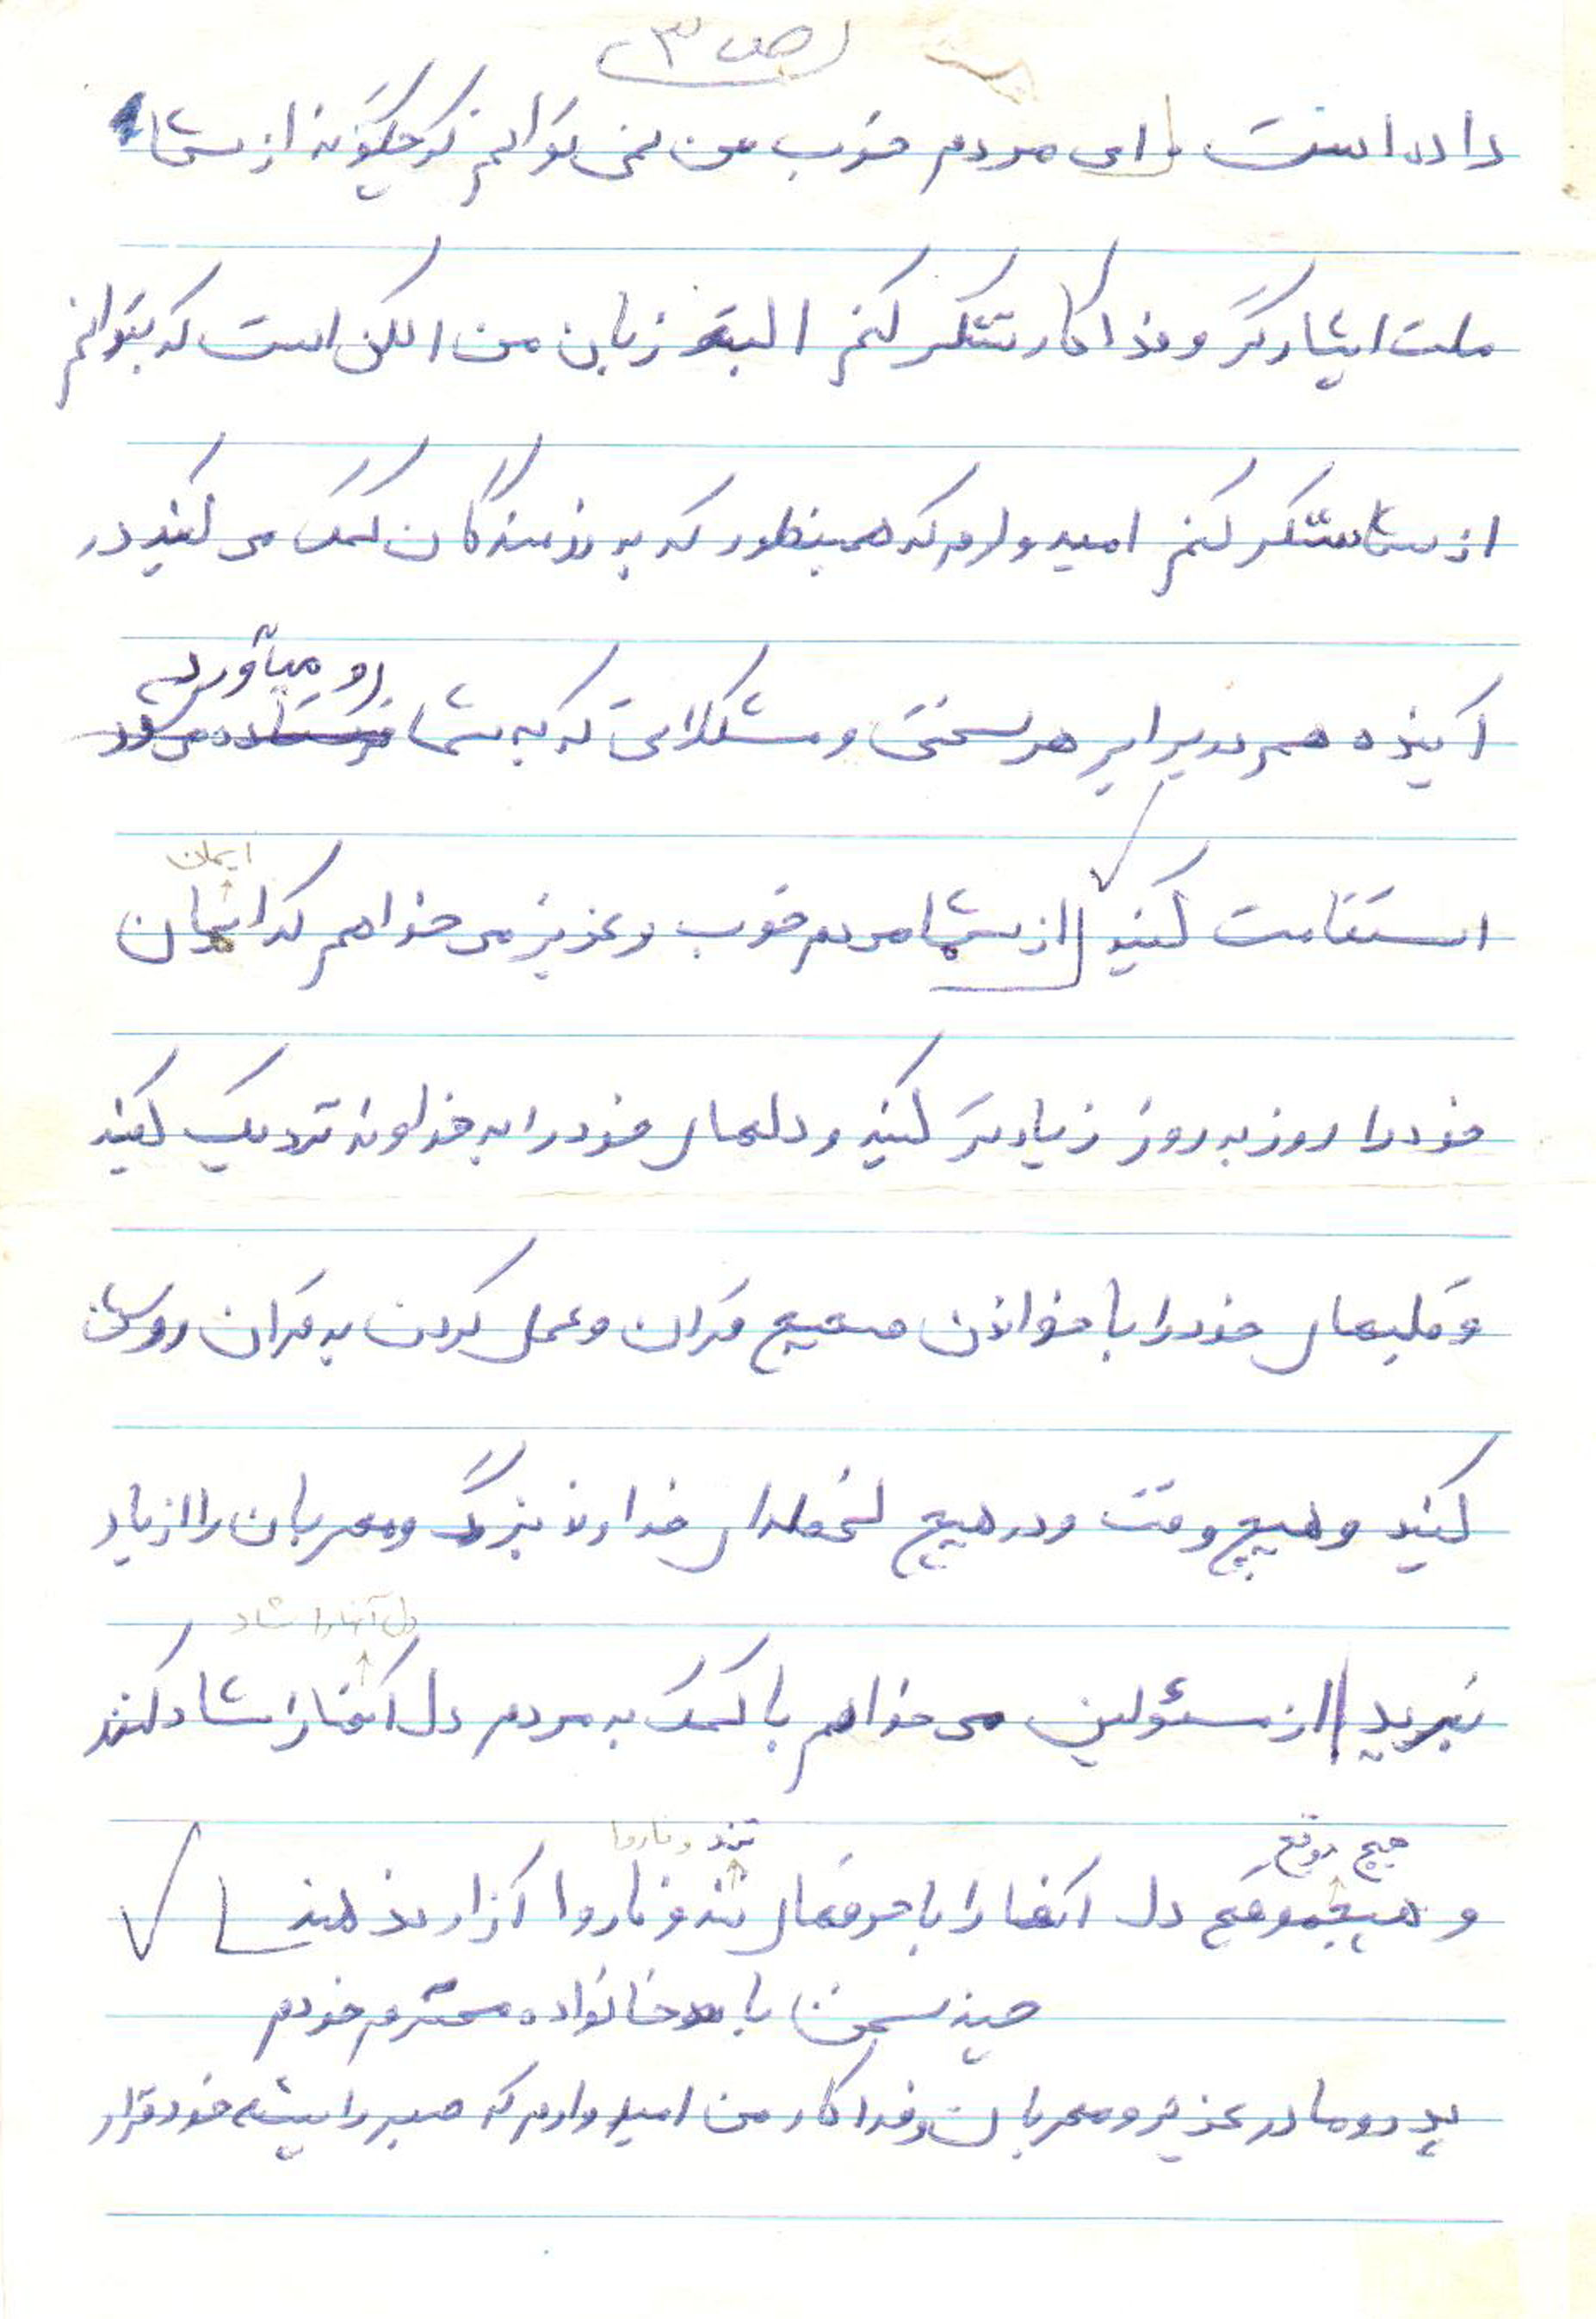 ص ۳
داده است ای مردم خوب من نمی توانم که چگونه از شما
ملت ایثارگر و فداکار تشکر کنم البته زبان من الکن است که بتوانم
از شما تشکر کنم امیدوارم که همینطور که به رزمندگان کمک می کنید در
رو میآورد
آینده هم در برابر هر سختی و مشکلاتی که به شما فرستاده می شود
ایمان
استقامت کنید از شما مردم خوب و عزیز می خواهم که ایمان
خود را روز به روز زیادتر کنید و دلهای خود را به خداوند نزدیک کنید
و قلبهای خود را با خواندن صحیح قران و عمل کردن به قران روشن
کنید و هیچ وقت و در هیچ لحظه‌ای خداوند بزرگ و مهربان را از یاد
دل آنها را شاد
نبرید از مسئولین می خواهم با کمک به مردم دل آنها را شاد کنند
هیچ موقع تند و ناروا
و هیچموقع دل آنها را با حرفهای تند و ناروا آزار ندهند
چند سخن با خانواده محترم خودم
پدر و مادر عزیز و مهربان و فداکار من امیدوارم که صبر را پیشه خود قرار